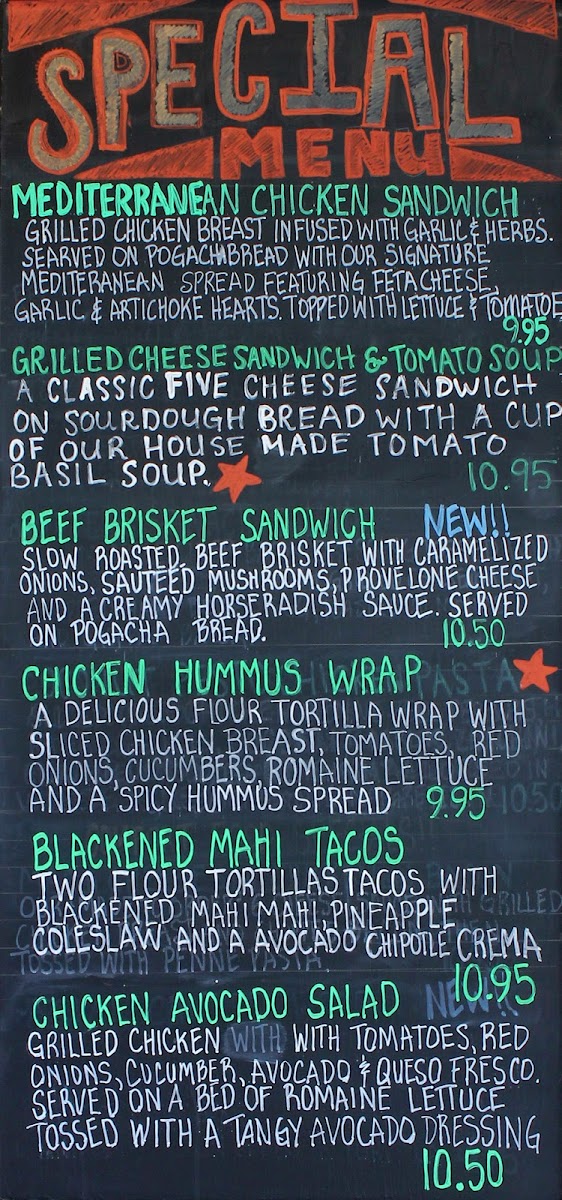 SPECIAL
MENU
MEDITERRANEAN CHICKEN SANDWICH
GRILLED CHICKEN BREAST INFUSED WITH GARLIC & HERBS.
SEARVED ON POGACHA BREAD WITH OUR SIGNATURE
MEDITERANEAN SPREAD FEATURING FETA CHEESE,
GARLIC & ARTICHOKE HEARTS. TOPPED WITH LETTUCE & TOMATOE
9.95
GRILLED CHEESE SANDWICH & TOMATO SOUP
A CLASSIC FIVE CHEESE SANDWICH
ON SOURDOUGH BREAD WITH A CUP
OF OUR HOUSE MADE TOMATO
BASIL SOUP.
10.95
BEEF BRISKET SANDWICH NEW!!
SLOW ROASTED, BEEF BRISKET WITH CARAMELIZED
ONIONS, SAUTEED MUSHROOMS, PROVELONE CHEESE
AND A CREAMY HORSERADISH SAUCE. SERVED
ON POGACHA BREAD. 10.50
CHICKEN HUMMUS WRAP PASTA
A DELICIOUS FLOUR TORTILLA WRAP WITH
SLICED CHICKEN BREAST, TOMATOES, RED
ONIONS, CUCUMBERS, ROMAINE LETTUCE
AND A SPICY HUMMUS SPREAD 9.95 10.50
BLACKENED MAHI TACOS
TWO FLOUR TORTILLAS TACOS WITH
BLACKENED MAHI MAHI, PINEAPPLE GRILLED
COLESLAW AND A AVOCADO CHIPOTLE CREMA
TOSSED WITH PENNE PASTA.
10.95
CHICKEN AVOCADO SALAD NEW!!
GRILLED CHICKEN WITH WITH TOMATOES, RED
ONIONS, CUCUMBER, AVOCADO & QUESO FRESCO.
SERVED ON A BED OF ROMAINE LETTUCE
TOSSED WITH A TANGY AVOCADO DRESSING
10.50